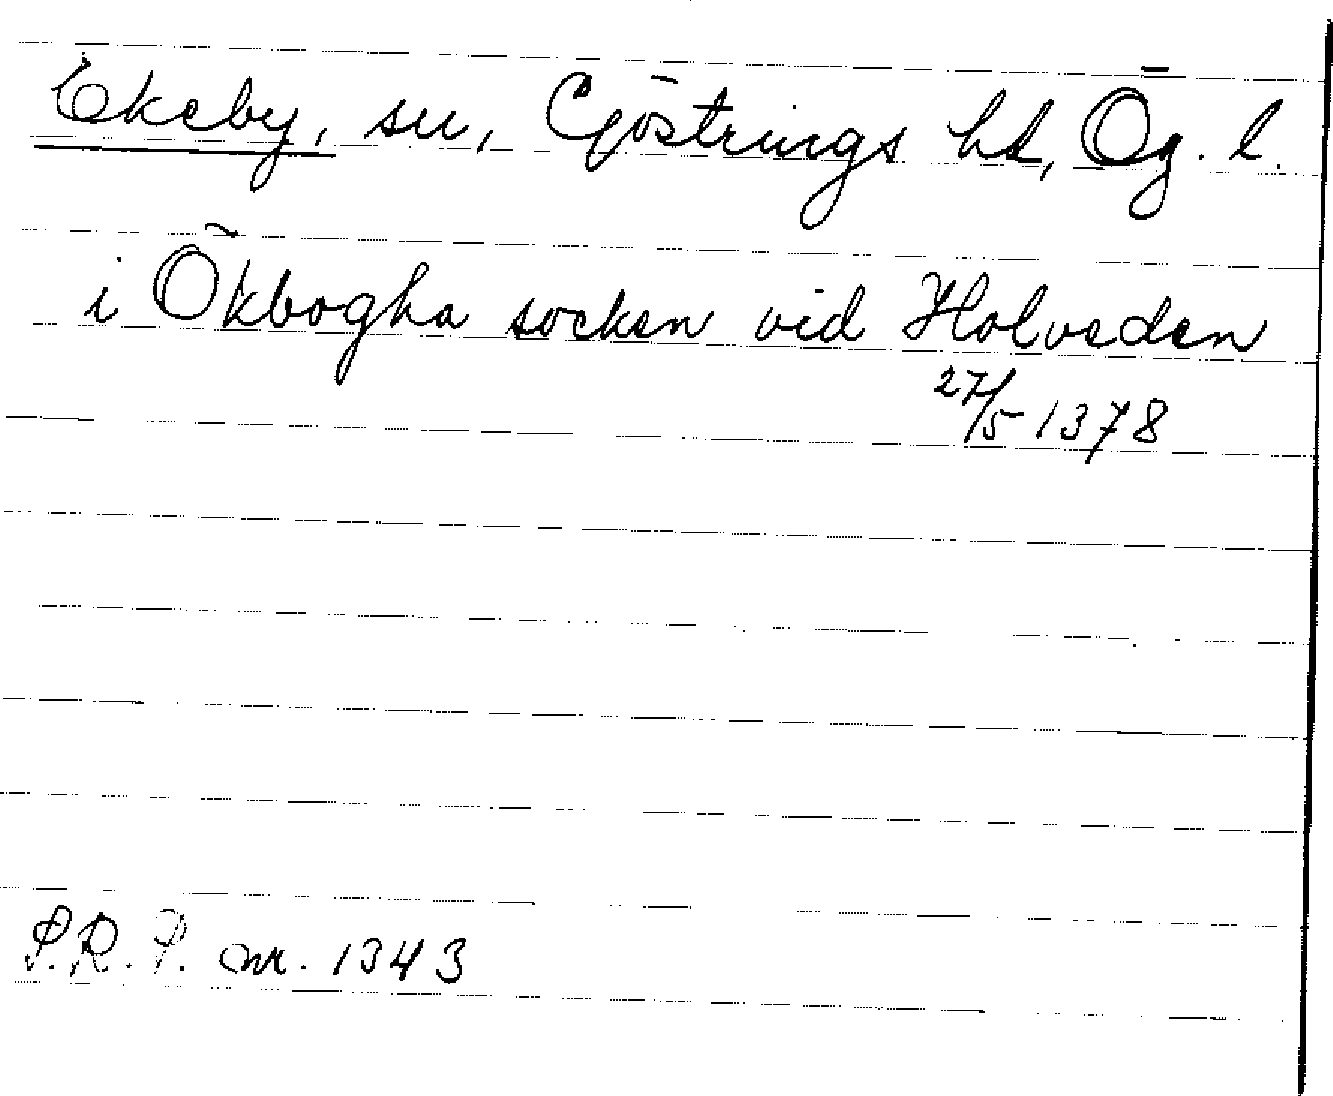 Ekeby, sn, Göstrings hd, Ög. l.
i Ökbogha socken vid Holveden
27/5 1378
P.R.P. nr. 1343